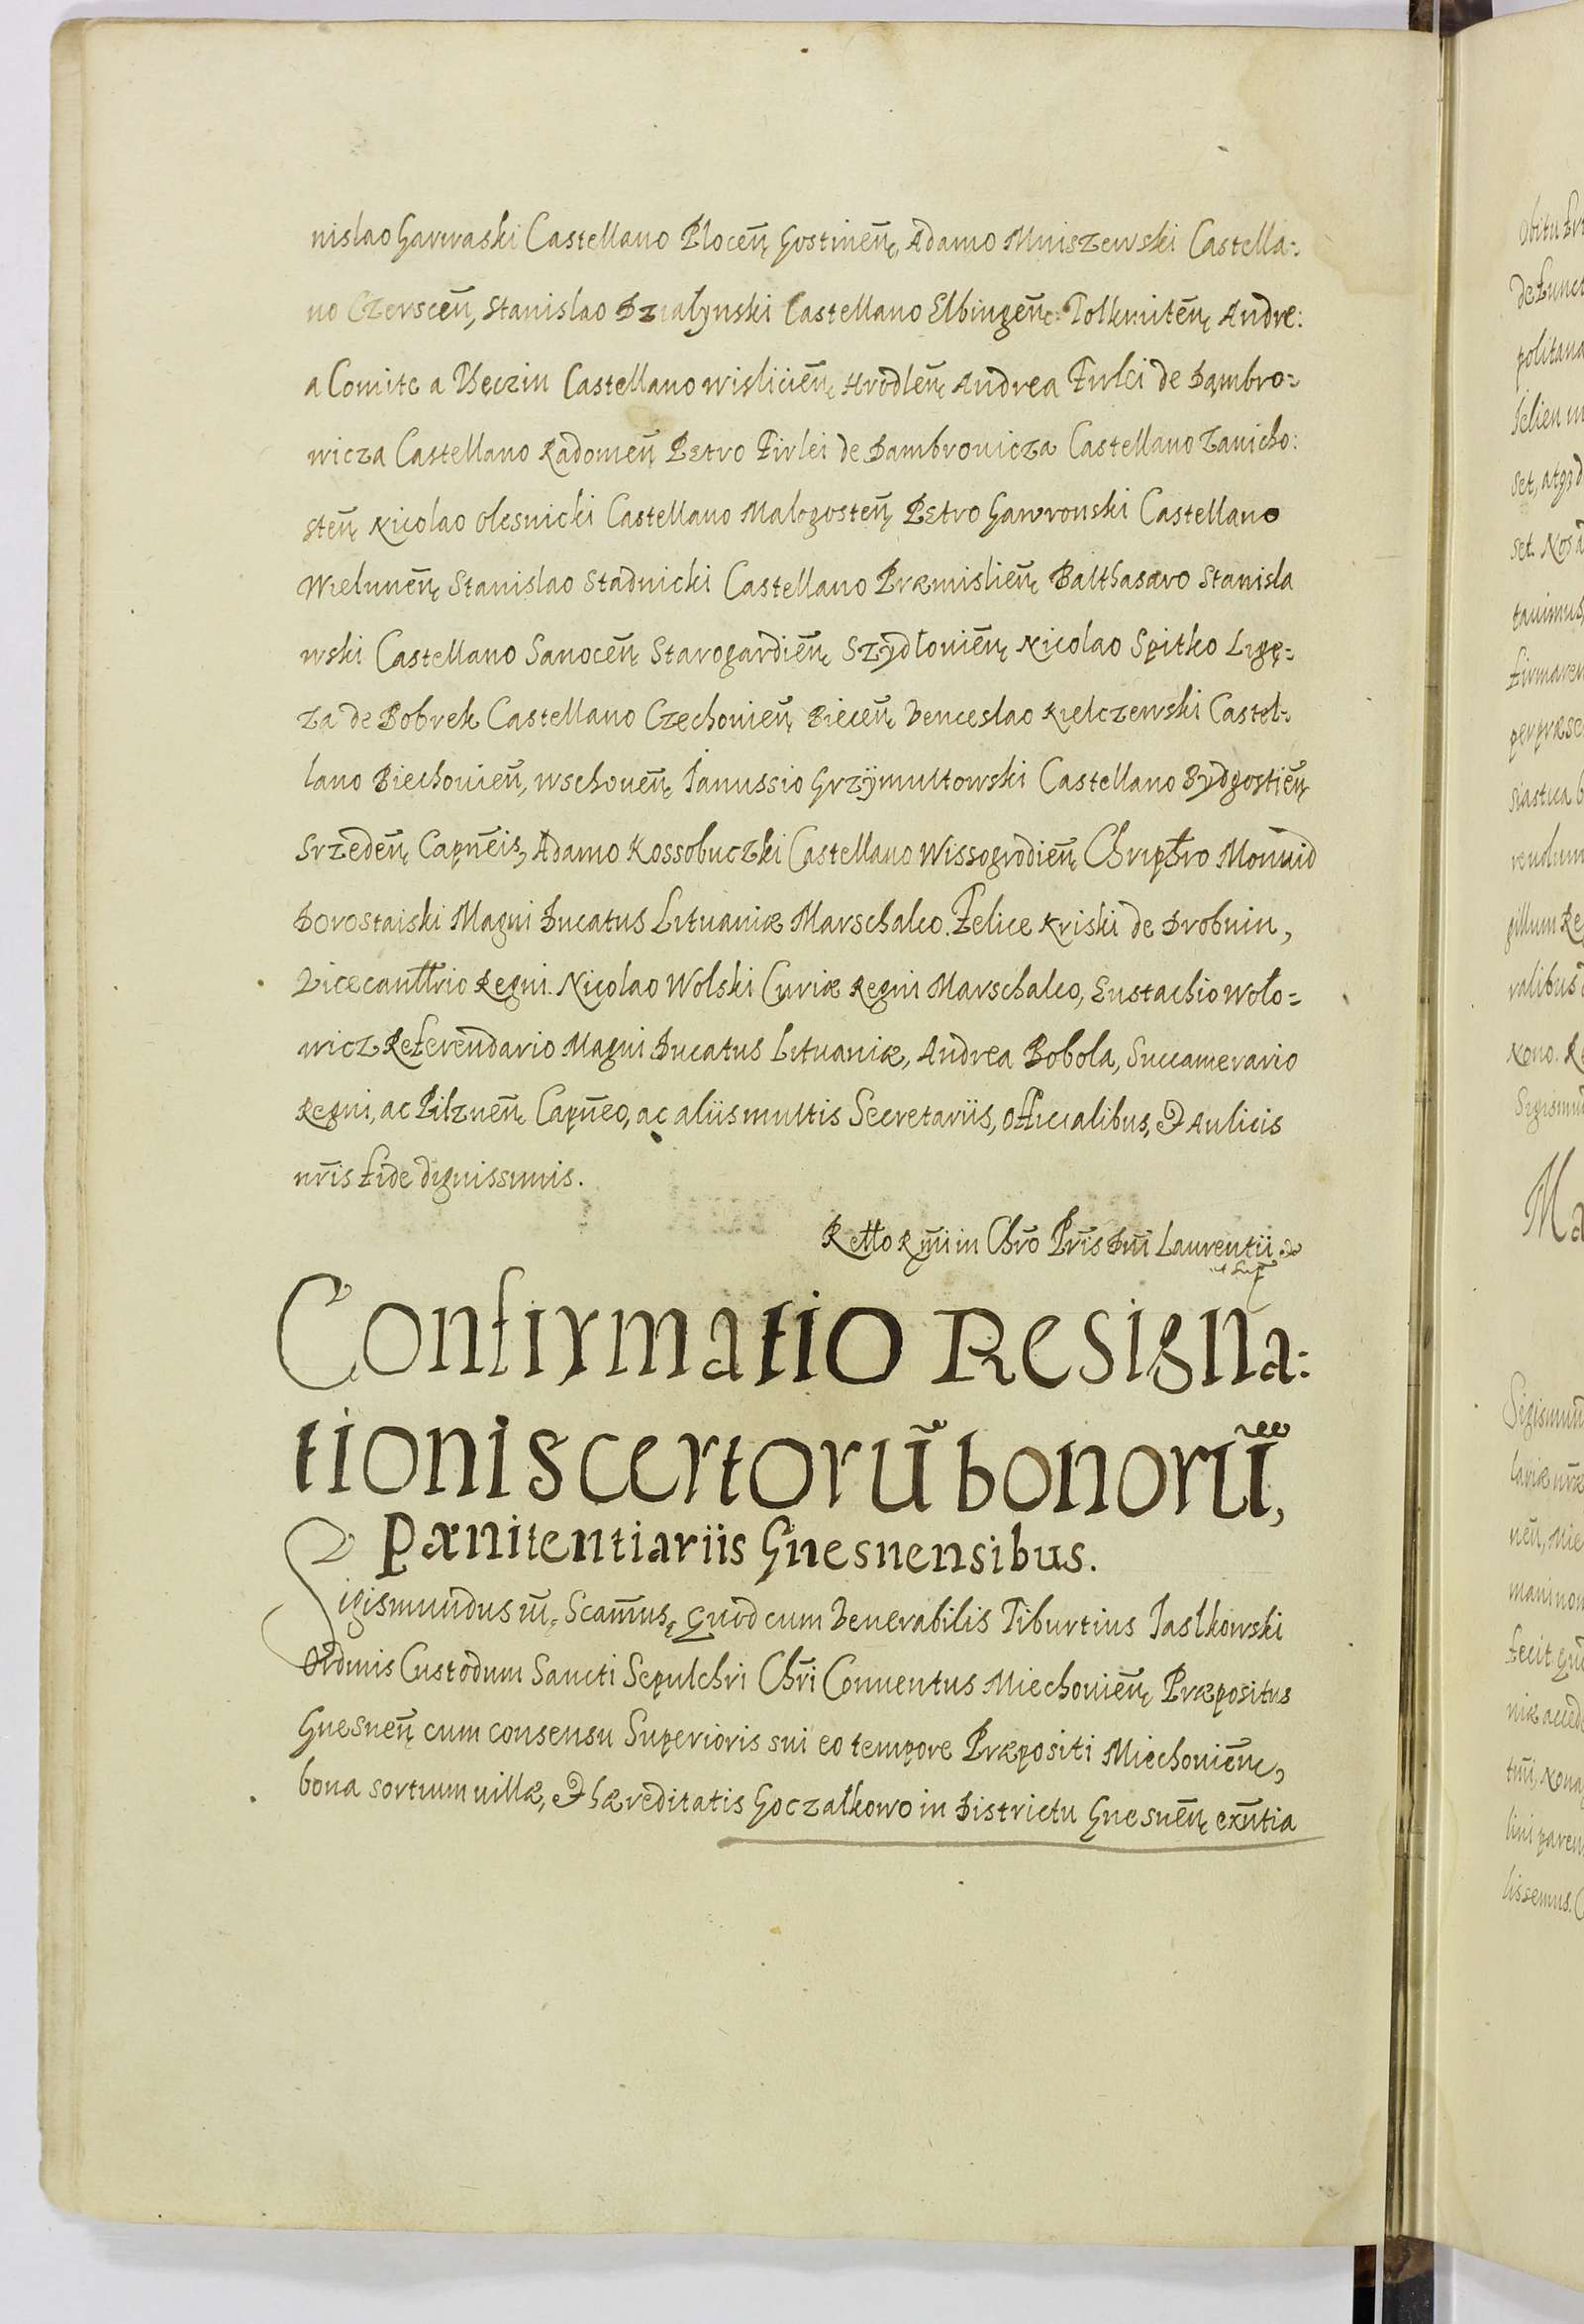 nislao Garwaski Castellano Plocen̄ę Gostinen̄ę, Adamo Mniszewski Castella:
no Czerscen̄, Stanislao Działynski Castellano Elbingen̄ę: Tolkmiten̄ę Andre:
a Comite a Theczin Castellano wislicien̄ę Hrodlen̄ę Andrea Firlei de Dąmbro=
wicza Castellano Radomen̄ę Petro Firlei de Dambrouicza Castellano Zauicho:
sten̄ę Nicolao Olesnicki Castellano Malogosten̄ę Petro Gawronski Castellano
Wielunen̄ę Stanislao Stadnicki Castellano Præmislien̄ę Balthasaro Stanisla
wski Castellano Sanocen̄ę Starogardien̄ę Szydłouien̄ę Nicolao Spitko Ligę=
za de Bobrek Castellano Czechouien̄ę Biecen̄ę Venceslao Kielczewski Castel=
lano Biechouien̄, wschouen̄ę Ianussio Grzÿmultowski Castellano Bydgostien̄ę
Srzeden̄ę Capn̄eis, Adamo Kossobuczki Castellano Wissogrodien̄ę Chrip̄hro Monuid
Dorostaiski Magni Ducatus Lituaniæ Marschalco. Felice Kriski de Drobnin,
Vicecantl̄rio Regni. Nicolao Wolski Curiæ Regni Marschalco, Eustachio woło=
wicz Referendario Magni Ducatus Lituaniæ, Andrea Bobola, Succamerario
Regni, ac Pilznen̄ę Capn̄eo, ac aliis multis Secretariis, officialibus, & Aulicis
nr̄is fide dignissimis.
Rettō Rm̄i in Chrō Pr̄is Dn̄i Laurentii &
ut sup̄
Confirmatio Resigna:
tionis certorū bonorū,
Pænitentiariis Gnesnensibus.
Sigismundus iii̅. Scam̄us, Quod cum Venerabilis Tiburtius Iaslkowski
Ordinis Custodum Sancti Sepulchri Chr̄i Conuentus Miechouien̄ę Præpositus
Gnesnen̄ę cum consensu Superioris sui eo tempore Præpositi Miechouien̄ę,
bona sortium uillæ, & hæreditatis Goczałkowo in Districtu Gnesnen̄ę exn̄tia